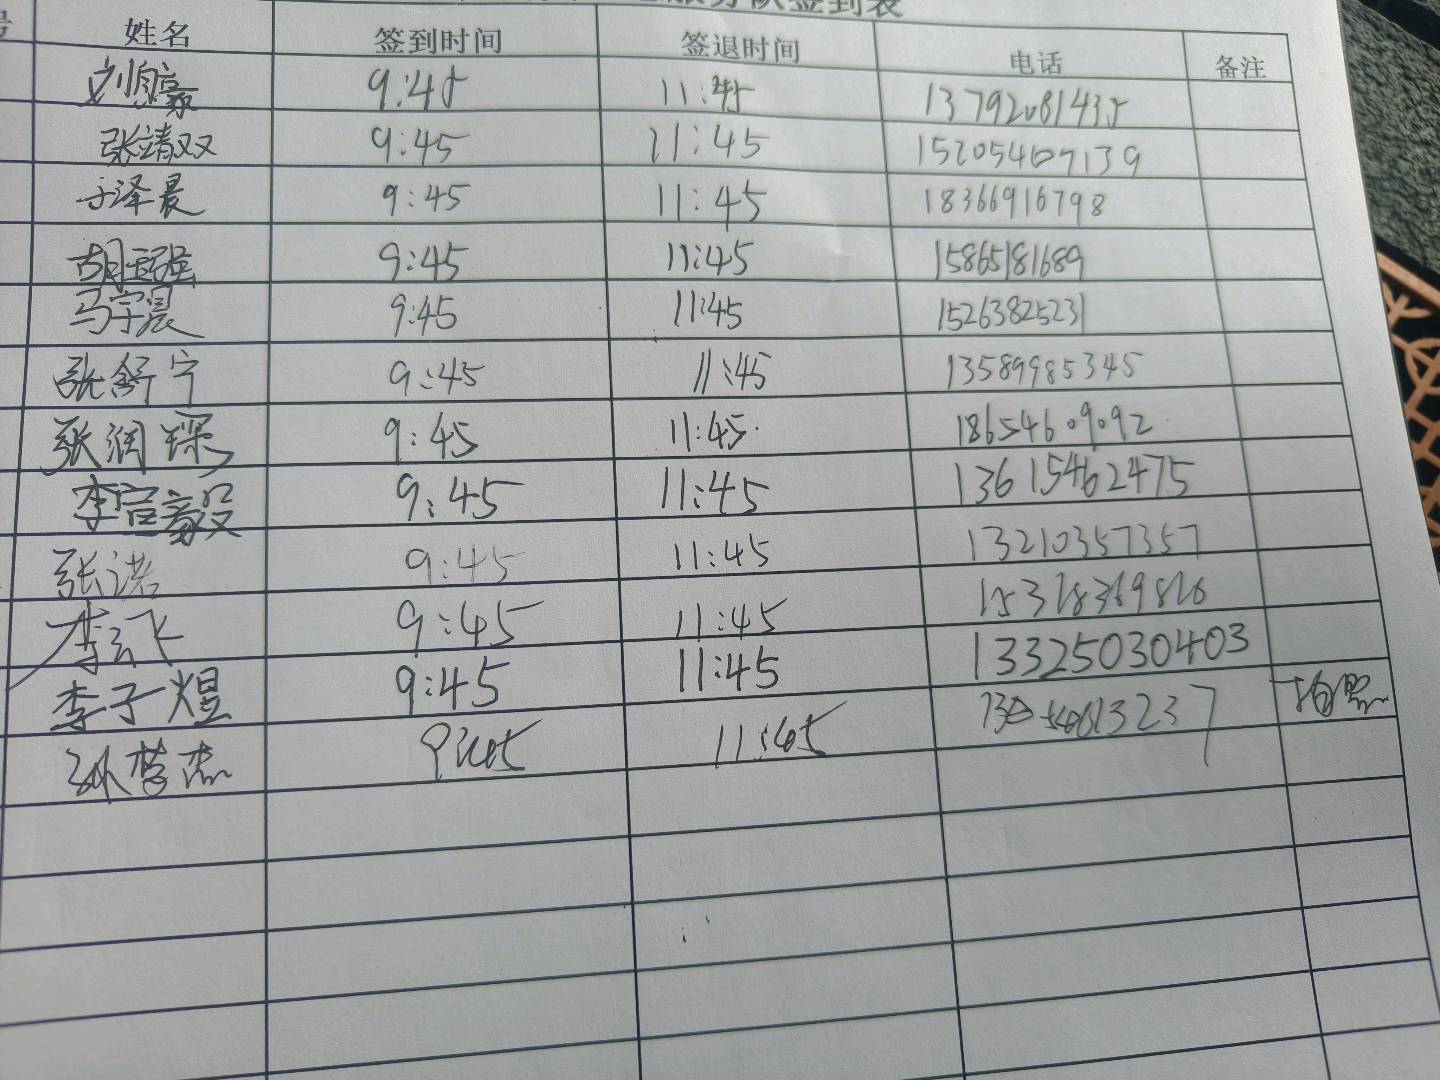 服务队签到表
号 姓名 签到时间 签退时间 电话 备注
刘自豪 9:45 11:45 13792081435
张靖双 9:45 11:45 15205467139
于泽晨 9:45 11:45 18366916798
胡强 9:45 11:45 15865181689
马宇晨 9:45 11:45 15263825231
张舒宁 9:45 11:45 13589985345
张润琛 9:45 11:45 18654609092
李宣毅 9:45 11:45 13615462475
张诺 9:45 11:45 13210357357
李云飞 9:45 11:45
李子煜 9:45 11:45 13325030403
孙梦杰 9:45 11:45 拍照